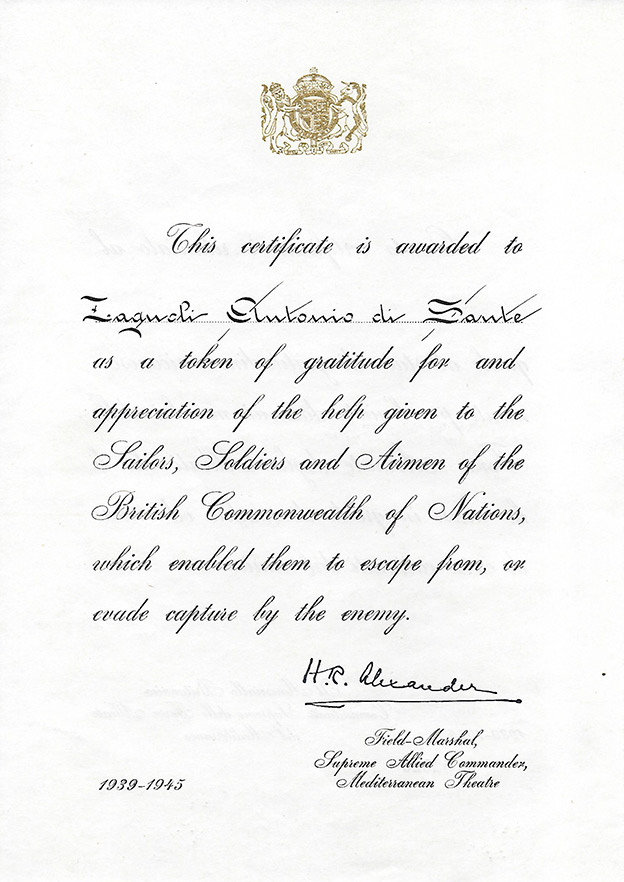 This certificate is awarded to
Zagnoli Antonio di Sante
as a token of gratitude for and
appreciation of the help given to the
Sailors, Soldiers and Airmen of the
British Commonwealth of Nations,
which enabled them to escape from, or
evade capture by the enemy.
H.R. Alexander
Field-Marshal,
Supreme Allied Commander,
Mediterranean Theatre
1939-1945